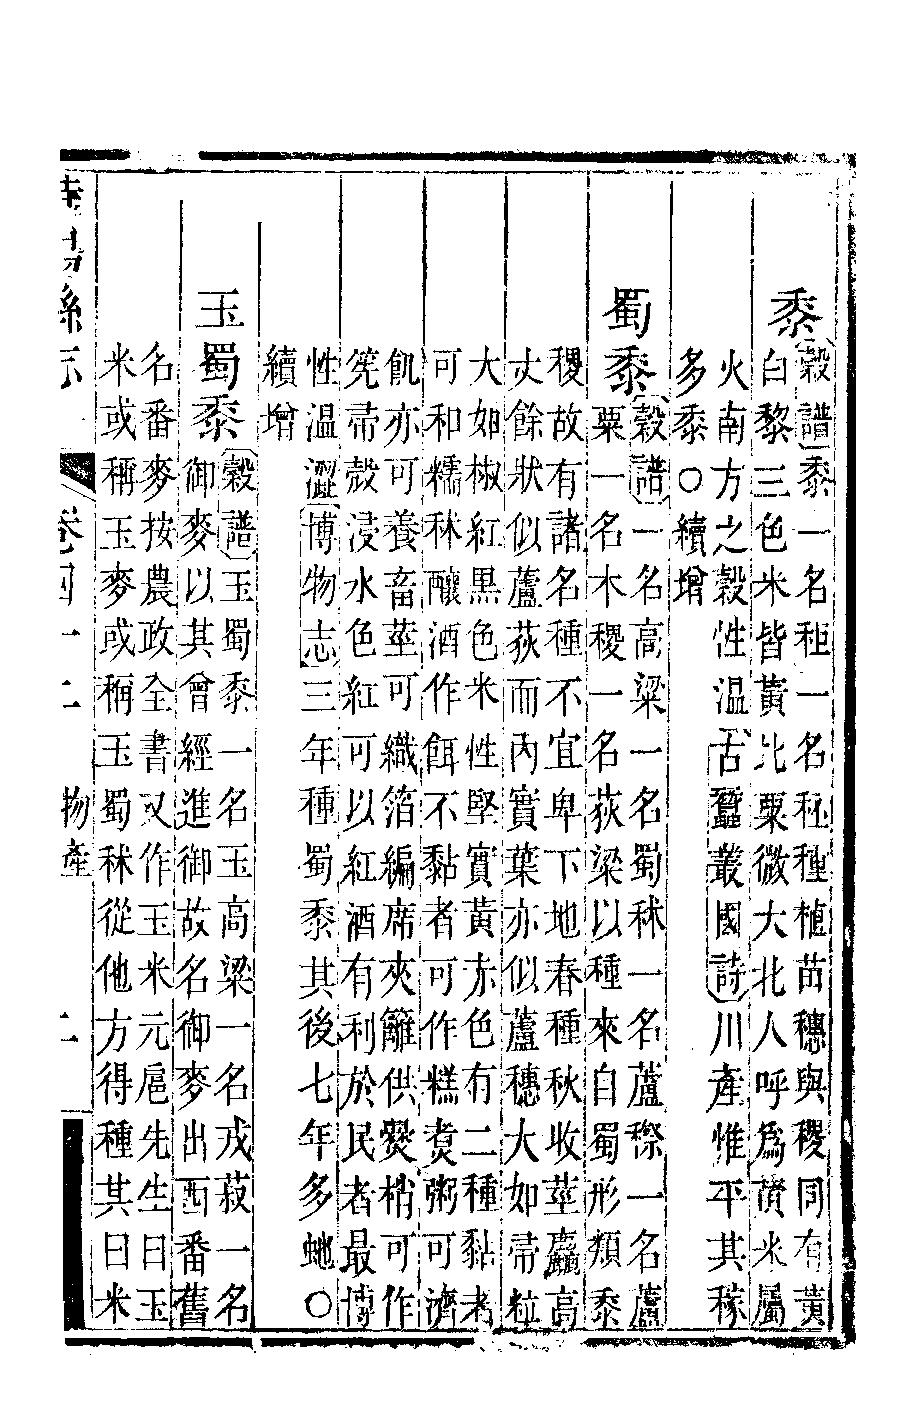 黍穀譜黍一名秬一名秠種植苗穗與稷同有黃
白黎三色米皆黃比粟微大北人呼爲黃米屬
火南方之穀性温古蠶叢國詩川產惟平其稼
多黍○續增
蜀黍穀譜一名高梁一名蜀秫一名蘆穄一名蘆
粟一名木稷一名荻梁以種來自蜀形類黍
稷故有諸名種不宜卑下地春種秋收莖麤高
丈餘狀似蘆荻而内實葉亦似蘆穗大如帚粒
大如椒紅黑色米性堅實黃赤色有二種黏者
可和糯秫釀酒作餌不黏者可作糕煑粥可濟
飢亦可養畜莖可織箔編席夾籬供爨梢可作
筅帚殻浸水色紅可以紅酒有利於民者最博
性温澀博物志三年種蜀黍其後七年多虵○
續增
玉蜀黍穀譜玉蜀黍一名玉高梁一名戎菽一名
御麥以其曾經進御故名御麥出西番舊
名番麥按農政全書又作玉米元扈先生曰玉
米或稱玉麥或稱玉蜀秫從他方得種其曰米
縣志 卷四十二 物產 二